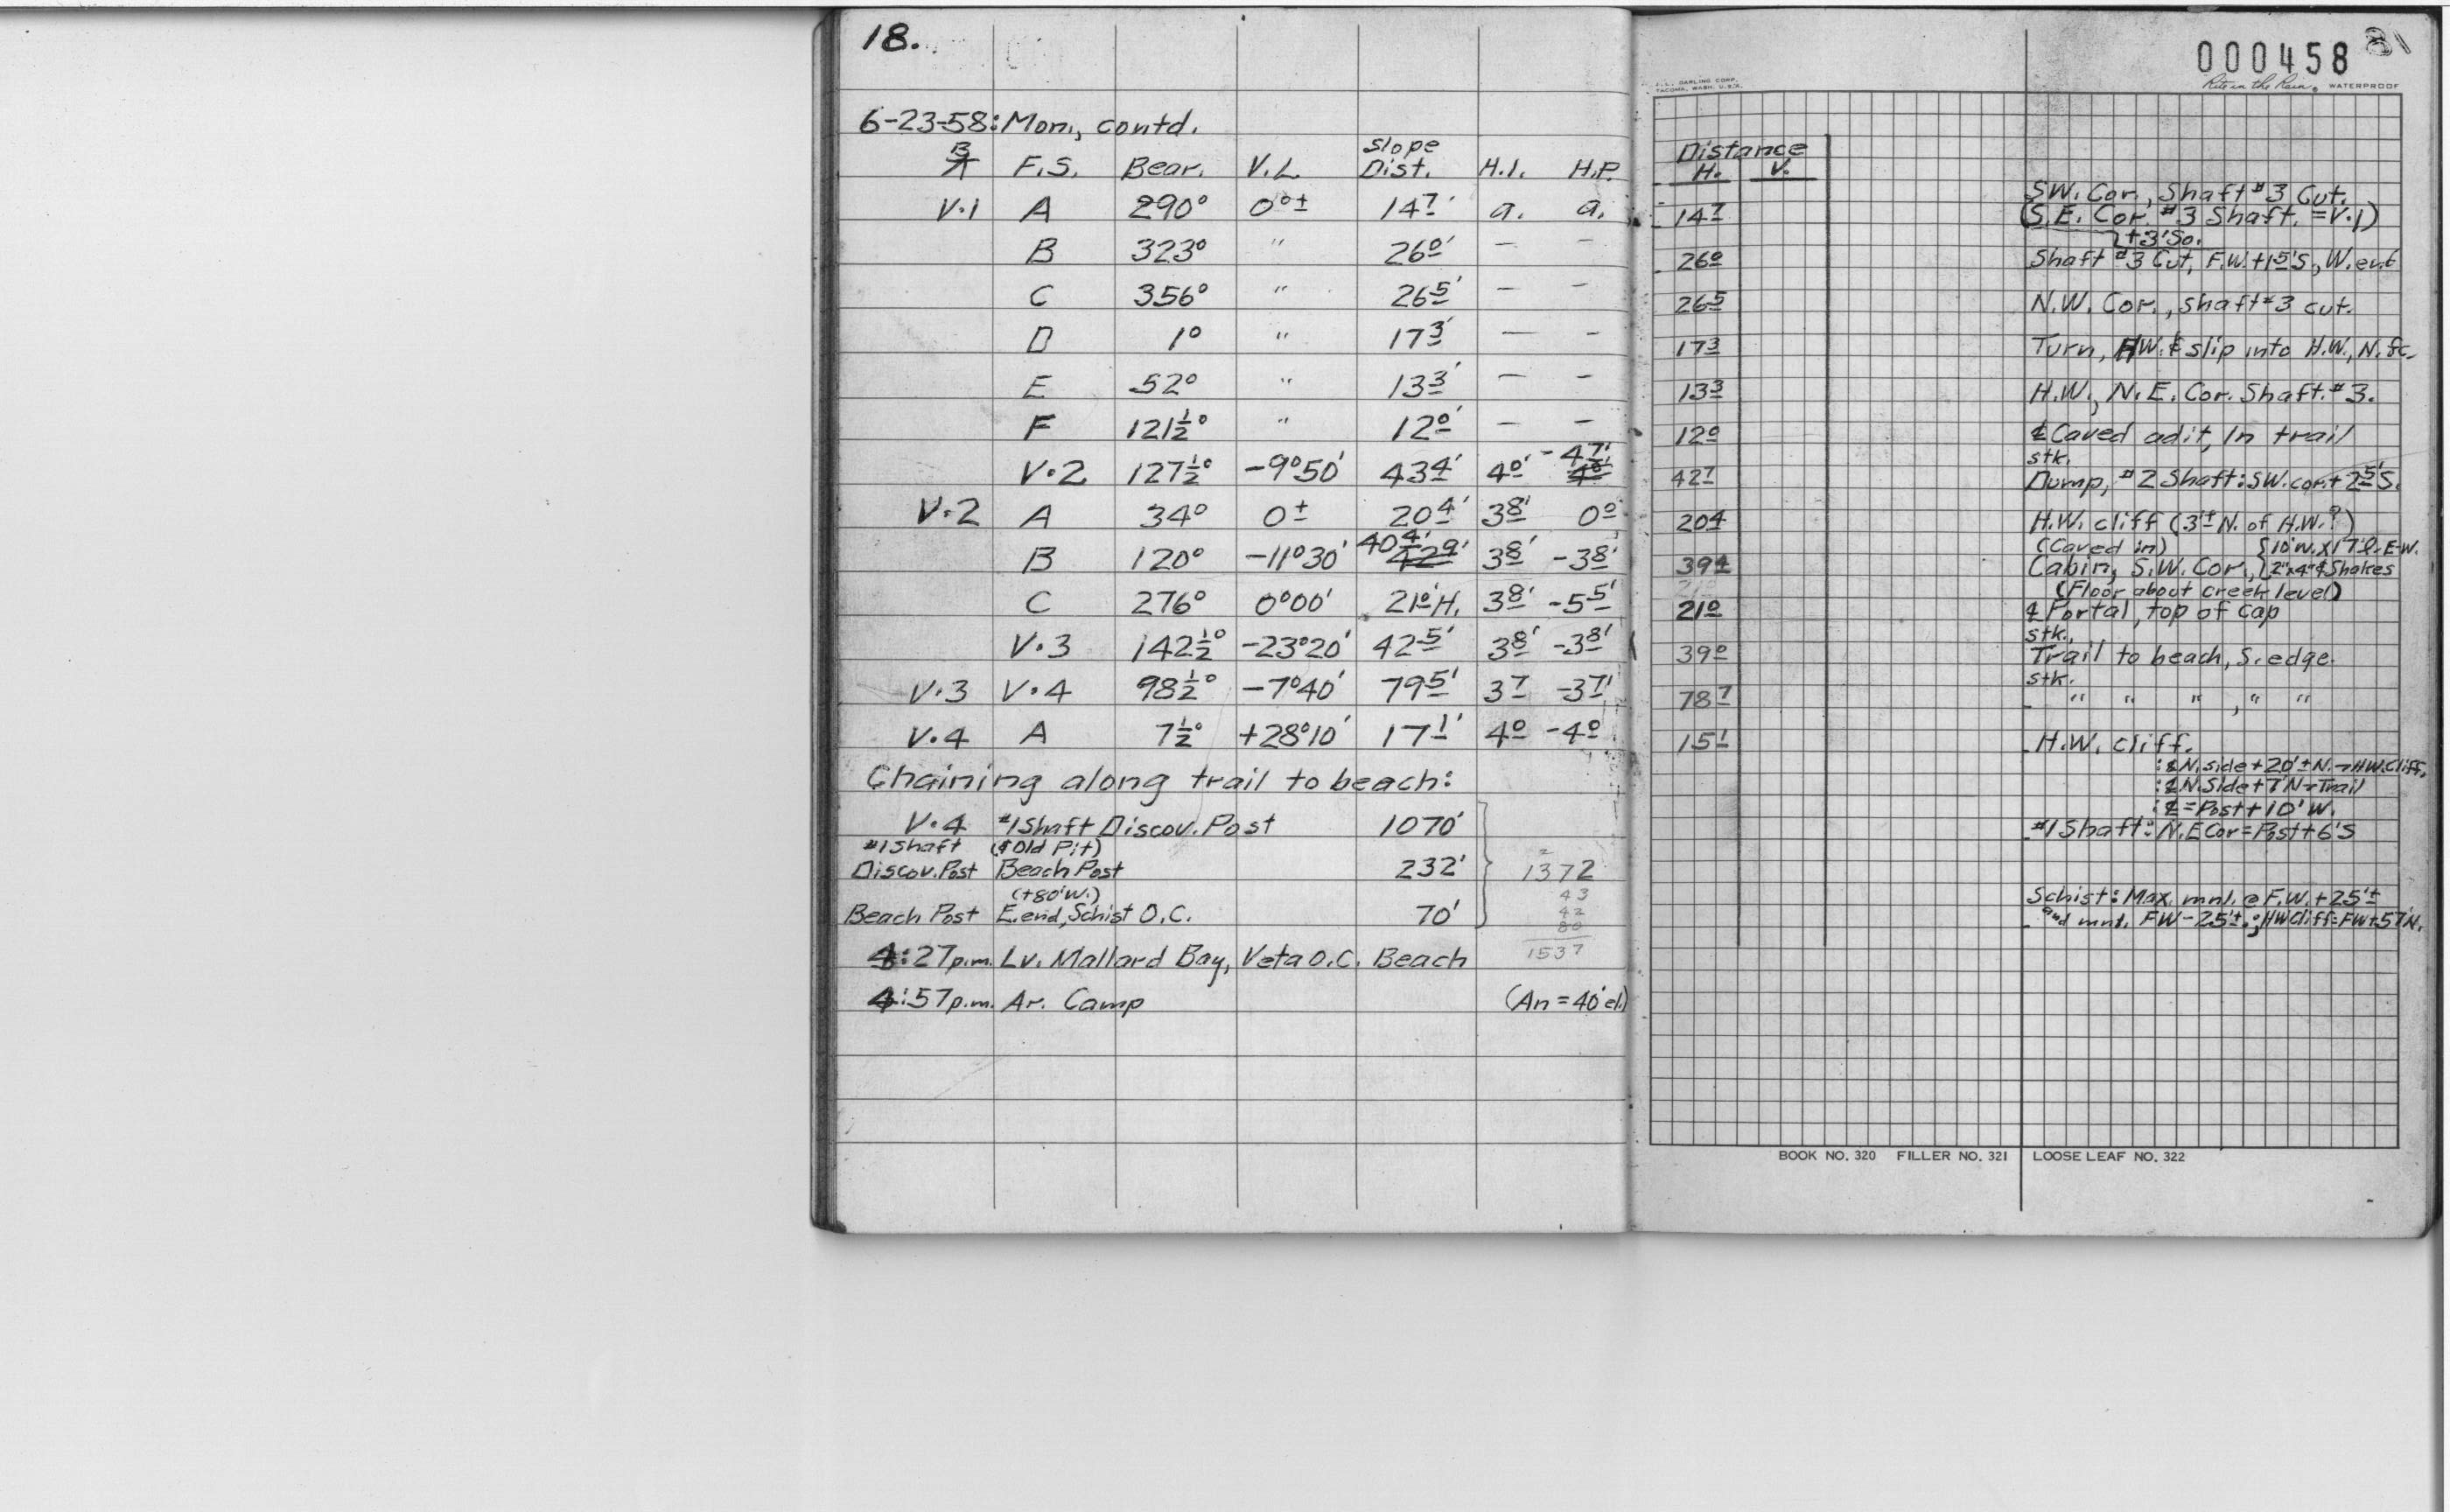 18.
6-23-58: Mon., contd.
Slope
B/⊼ F.S. Bear. V.L. Dist. H.I. H.P.
V.1 A 290° 0°± 14 7' a. a.
B 323° " 26 0' — —
C 356° " 26 5' — —
D 1° " 17 3' — —
E 52° " 13 3' — —
F 121½° " 12 0' — —
V.2 127½° -9°50' 43 4' 4 0' -4 7' 4 8'
V.2 A 34° 0± 20 4' 3 8' 0 0
B 120° -11°30' 40 4' 42 9' 3 8' -3 8'
C 276° 0°00' 21 0' H. 3 8' -5 5'
V.3 142½° -23°20' 42 5' 3 8' -3 8'
V.3 V.4 98½° -7°40' 79 5' 3 7 -3 7'
V.4 A 7½° +28°10' 17 1' 4 0 -4 0
Chaining along trail to beach:
V.4 #1 Shaft Discov. Post 1070'
#1 Shaft (& Old Pit)
Discov. Post Beach Post 232' 1372
(+80'W.) 43
Beach Post E. end, Schist O.C. 70' 42
80
4:27 p.m. Lv. Mallard Bay, Veta O.C. Beach 1537
4:57 p.m. Ar. Camp (An = 40' el.)
000458 81
F.L. DARLING CORP.
TACOMA, WASH. U.S.A.
Rite in the Rain WATERPROOF
Distance
H. V.
SW. Cor., Shaft #3 Cut.
14 7 (S.E. Cor. #3 Shaft. = V.1)
+3' So.
26 0 Shaft #3 Cut, F.W. + 1 5'S, W. end
26 5 N.W. Cor., Shaft #3 cut.
17 3 Turn, HW. & slip into H.W., N. fc.
13 3 H.W., N.E. Cor. Shaft. #3.
12 0 ℄ Caved adit, In trail
stk.
42 7 Dump, #2 Shaft: SW. cor. + 2 5'S.
20 4 H.W. cliff (3'± N. of H.W.?)
(Caved in) {10'W. x 17'l. E-W.
39 4 Cabin, S.W. Cor., {2"x4" & Shakes
(Floor about creek level)
21 0 ℄ Portal, top of cap
stk.
39 0 Trail to beach, S. edge.
stk.
78 7 " " " , " "
15 1 H.W. cliff.
: ℄ N. side + 20'± N. → HW. Cliff.
: ℄ N. Side + 7'N → Trail
: ℄ = Post + 10' W.
#1 Shaft: N.E Cor = Post + 6'S
Schist: Max. mnl. @ F.W. + 25'±
and mnl. FW - 25'±.; HW Cliff = FW + 57'N.
BOOK NO. 320 FILLER NO. 321 LOOSE LEAF NO. 322